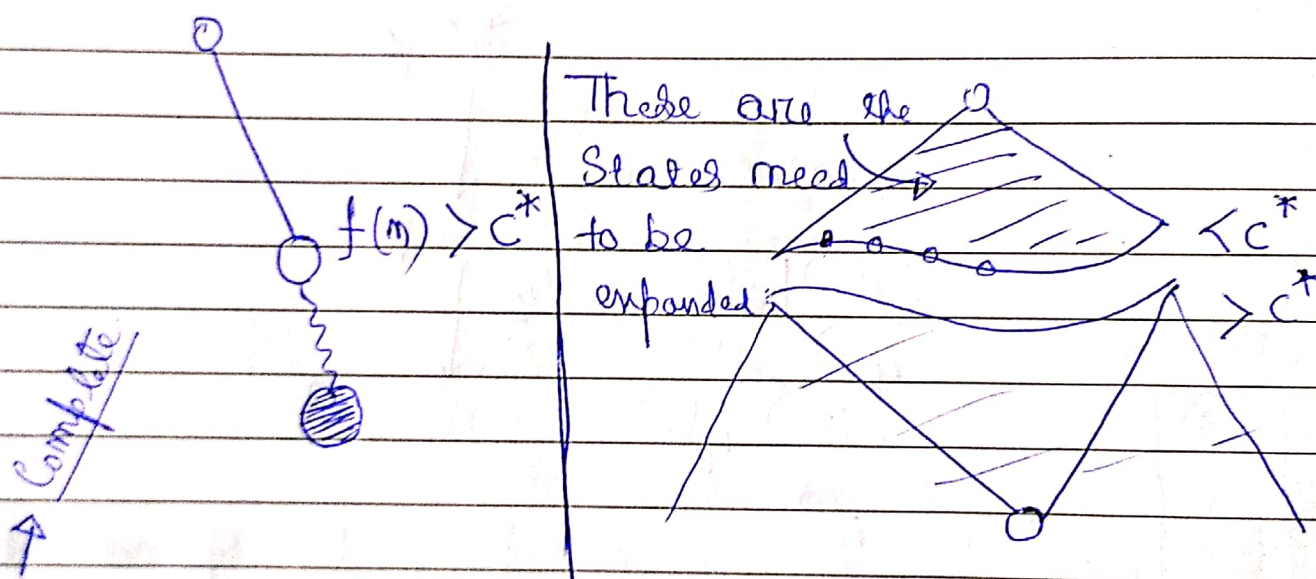 f(n) > C*
Complete
These are the
States need
to be
expanded
< C*
> C*